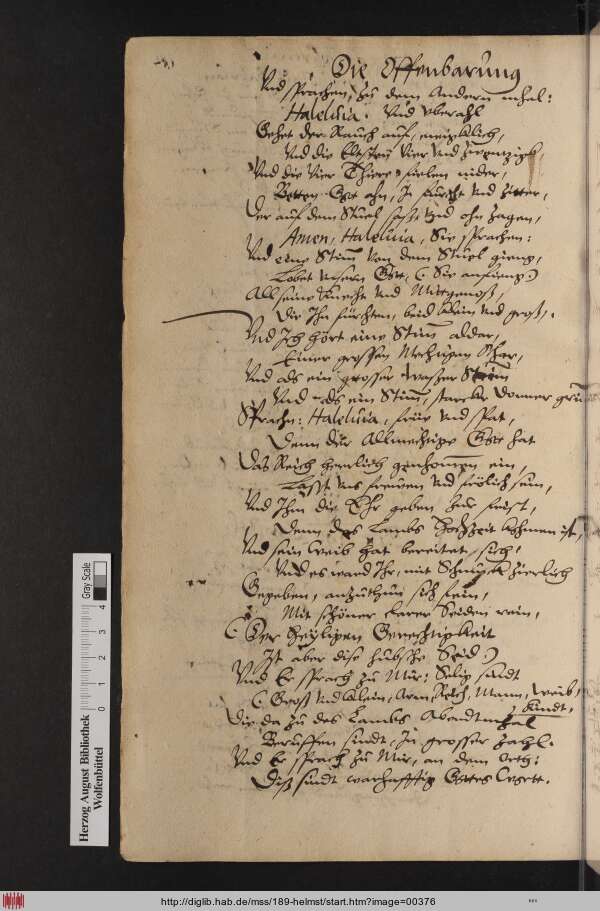 Die Offenbarung
Vnd sprachen, zu dem Andern mhal:
Haleluia. Vnd vberahl
Gehet der Rauch auf, ewigklich,
Vnd die Eltsten Vier Vnd zwenzigk,
Vnd die Vier Thiere fielen nider,
Betten Gott ahn, In furcht Vnd Zitter,
Der auf dem Stuel sass Vnd ohn zagen,
Amen, Haleluia, Sie sprachen:
Vnd eine Stim Von dem Stuel gieng,
Lobet Vnsern Gott, (Sie anfieng)
All seine Knecht Vnd Mittgenoß,
Die Ihn fürchten, beid klein Vnd groß.
Vnd Ich hört eine Stim alder,
Einer grossen Mehnigen Scher,
Vnd als ein grosser wasser
Vnd als ein Stim, starcker donner
Sprachn: Haleluia, früe Vnd spat,
Denn der Allmechtige Gott hat
Das Reich herrlich genhomen ein,
Lasst Vns frewen Vnd frölich sein,
Vnd Ihm die Ehr geben Zur frist,
Denn des Lambs Hochzeit khomen ist,
Vnd sein weib hat bereitet sich,
Vnd es ward Ihr, mit Schmuck zierlich
Gegeben, anzuthun sich fein,
Mit schöner klarer Seiden rein,
(Der Heyligen Gerechtigkeit
Ist aber dise hubsche Seid:)
Vnd Er sprach zu Mir: Selig seidt
(Gross Vnd klein, Arm, Reich, Mann, weib,
kindt,
Die da zu des Lambs Abendtmhal
Beruffen sindt, In grosser zahl.
Vnd Er sprach zu Mir, an dem orth:
Diß sindt warhafftig Gottes wortt.
Gray Scale
0 1 2 3 4
Herzog August Bibliothek
Wolfenbüttel
http://diglib.hab.de/mss/189-helmst/start.htm?image=00376